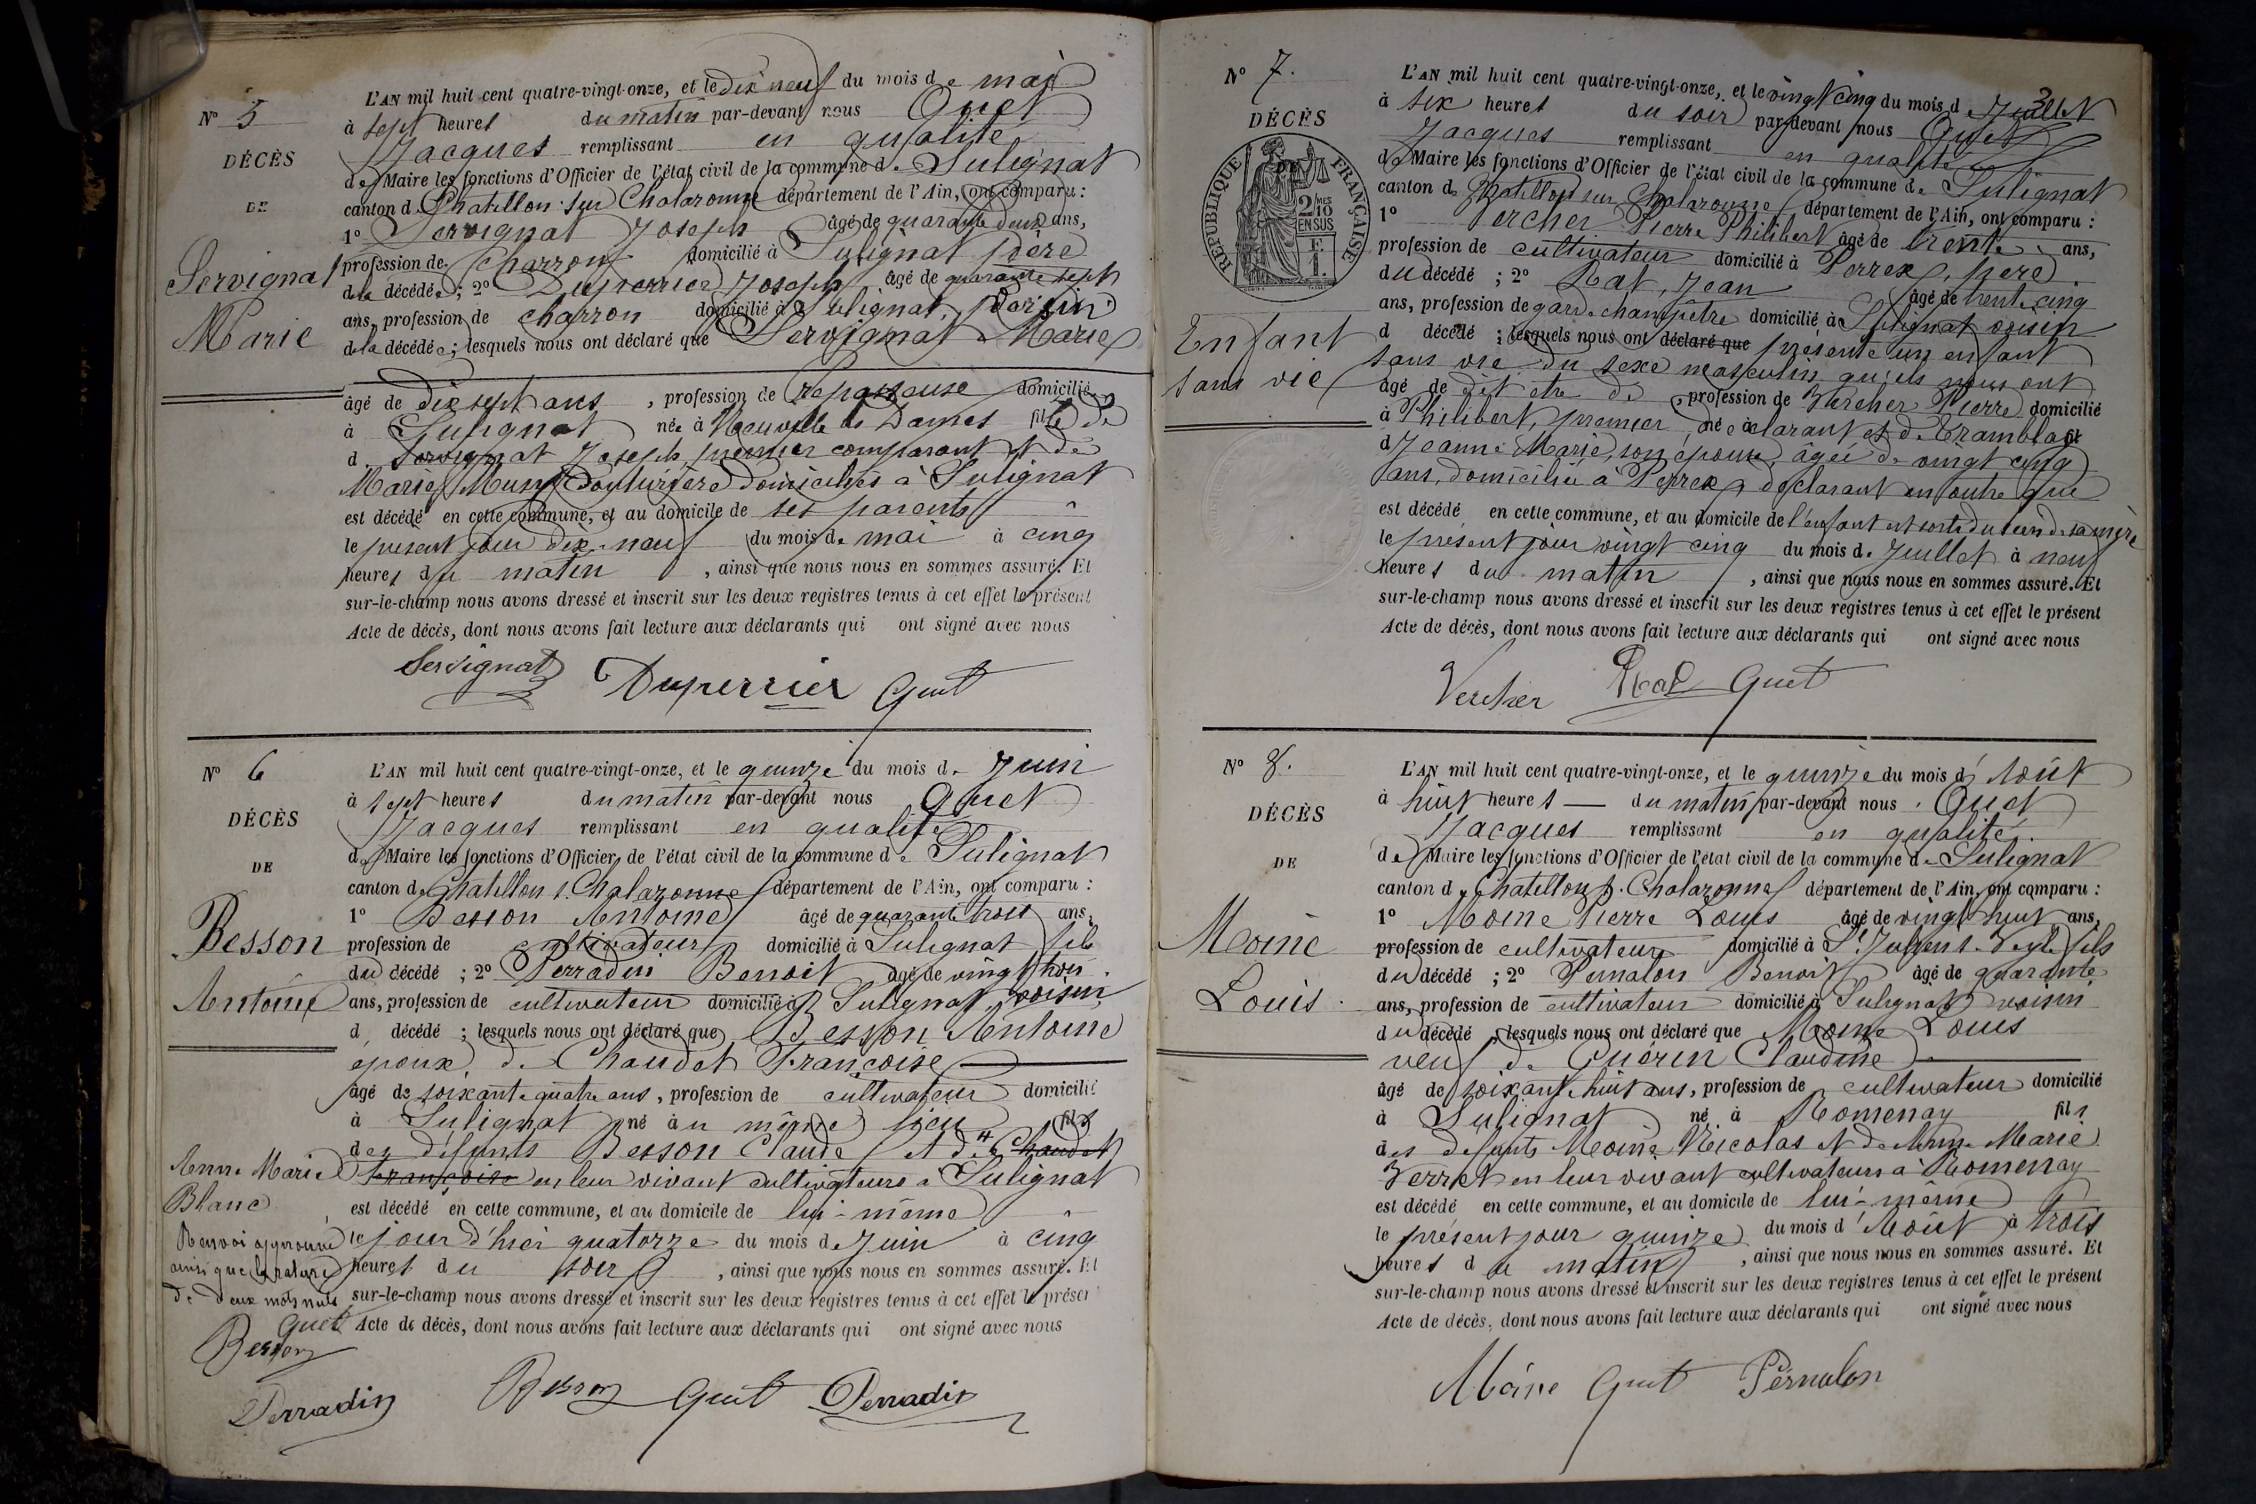 N° 5
DÉCÈS
DE
Servignat
Marie
L'AN mil huit cent quatre-vingt-onze, et le dix neuf du mois de mai
à sept heures du matin par-devant nous Quet
Jacques remplissant en qualité
de Maire les fonctions d'Officier de l'état civil de la commune de Sulignat
canton de Chatillon sur Chalaronne département de l'Ain, ont comparu :
1° Servignat Joseph âgé de quarante deux ans,
profession de charron domicilié à Sulignat père
de la décédée ; 2° Duperrier Joseph âgé de quarante sept
ans, profession de charron domicilié à Sulignat,
de la décédée ; lesquels nous ont déclaré que Servignat Marie
âgé de dix sept ans, profession de repasseuse domiciliée
à Sulignat née à Neuville les Dames fille de
d Servignat Joseph, premier comparant et de
Marie Couturière domiciliés à Sulignat
est décédé en cette commune, et au domicile de ses parents
le présent jour dix-neuf du mois de mai à cinq
heures du matin, ainsi que nous nous en sommes assuré. Et
sur-le-champ nous avons dressé et inscrit sur les deux registres tenus à cet effet le présent
Acte de décès, dont nous avons fait lecture aux déclarants qui ont signé avec nous
Servignat Duperrier Quet
N° 6
DÉCÈS
DE
Besson
Antoine
L'AN mil huit cent quatre-vingt-onze, et le quinze du mois de Juin
à sept heures du matin par-devant nous Quet
Jacques remplissant en qualité
de Maire les fonctions d'Officier de l'état civil de la commune de Sulignat
canton de Chatillon s. Chalaronne département de l'Ain, ont comparu :
1° Besson Antoine âgé de quarante trois ans,
profession de cultivateur domicilié à Sulignat fils
du décédé ; 2° Perradin Benoit âgé de vingt trois
ans, profession de cultivateur domicilié à Sulignat, voisin
d décédé ; lesquels nous ont déclaré que Besson Antoine
époux de Chaudet Françoise
âgé de soixante quatre ans, profession de cultivateur domicilié
à Sulignat né au même lieu fils
des défunts Besson Claude et de # Chaudet
Françoise en leur vivant cultivateurs à Sulignat
est décédé en cette commune, et au domicile de lui-même
le jour d'hier quatorze du mois de Juin à cinq
heures du soir, ainsi que nous nous en sommes assuré. Et
sur-le-champ nous avons dressé et inscrit sur les deux registres tenus à cet effet le présen
Acte de décès, dont nous avons fait lecture aux déclarants qui ont signé avec nous
Anne Marie
Blanc
Renvoi approuvé
ainsi que la rature
de deux mots nuls
Quet
Besson
Perradin
Besson Quet Perradin
N° 7.
DÉCÈS
DE
RÉPUBLIQUE FRANÇAISE
2 MES
10
EN SUS
F.
1.
Enfant
sans vie
3
L'AN mil huit cent quatre-vingt-onze, et le vingt cinq du mois de Juillet
à six heures du soir par-devant nous Quet
Jacques remplissant en qualité
de Maire les fonctions d'Officier de l'état civil de la commune de Sulignat
canton de Chatillon sur Chalaronne département de l'Ain, ont comparu :
1° Vercher Pierre Philibert âgé de trente ans,
profession de cultivateur domicilié à Perrex, père
du décédé ; 2° Rat, Jean âgé de trente cinq
ans, profession de garde champêtre domicilié à Sulignat voisin
d décédé ; lesquels nous ont déclaré que présenté un enfant
sans vie du sexe masculin qu'ils nous ont
âgé de dit être de, profession de Vercher Pierre domicilié
à Philibert, premier né à déclarant et de Tramblay fil
d Jeanne Marie, son épouse, âgée de vingt cinq
ans, domiciliée à Perrex, déclarant en outre que
est décédé en cette commune, et au domicile de l'enfant est sorti du sein de sa mère
le présent jour vingt cinq du mois de Juillet à neuf
heures du matin, ainsi que nous nous en sommes assuré. Et
sur-le-champ nous avons dressé et inscrit sur les deux registres tenus à cet effet le présent
Acte de décès, dont nous avons fait lecture aux déclarants qui ont signé avec nous
Vercher Rat Quet
N° 8.
DÉCÈS
DE
Moine
Louis.
L'AN mil huit cent quatre-vingt-onze, et le quinze du mois d'Août
à huit heures du matin par-devant nous Quet
Jacques remplissant en qualité
de Maire les fonctions d'Officier de l'état civil de la commune de Sulignat
canton de Chatillon s. Chalaronne département de l'Ain, ont comparu :
1° Moine Pierre Louis âgé de vingt huit ans,
profession de cultivateur domicilié à St Julien s. Veyle fils
du décédé ; 2° Pernalon Benoit âgé de quarante
ans, profession de cultivateur domicilié à Sulignat voisin
du décédé, lesquels nous ont déclaré que Moine Louis
veuf de Guérin Claudine
âgé de soixante huit ans, profession de cultivateur domicilié
à Sulignat né à Romenay fils
des défunts Moine Nicolas et de Anne Marie
Verret en leur vivant cultivateurs à Romenay
est décédé en cette commune, et au domicile de lui-même
le présent jour quinze du mois d'Août à trois
heures du matin, ainsi que nous nous en sommes assuré. Et
sur-le-champ nous avons dressé et inscrit sur les deux registres tenus à cet effet le présent
Acte de décès, dont nous avons fait lecture aux déclarants qui ont signé avec nous
Moine Quet Pernalon